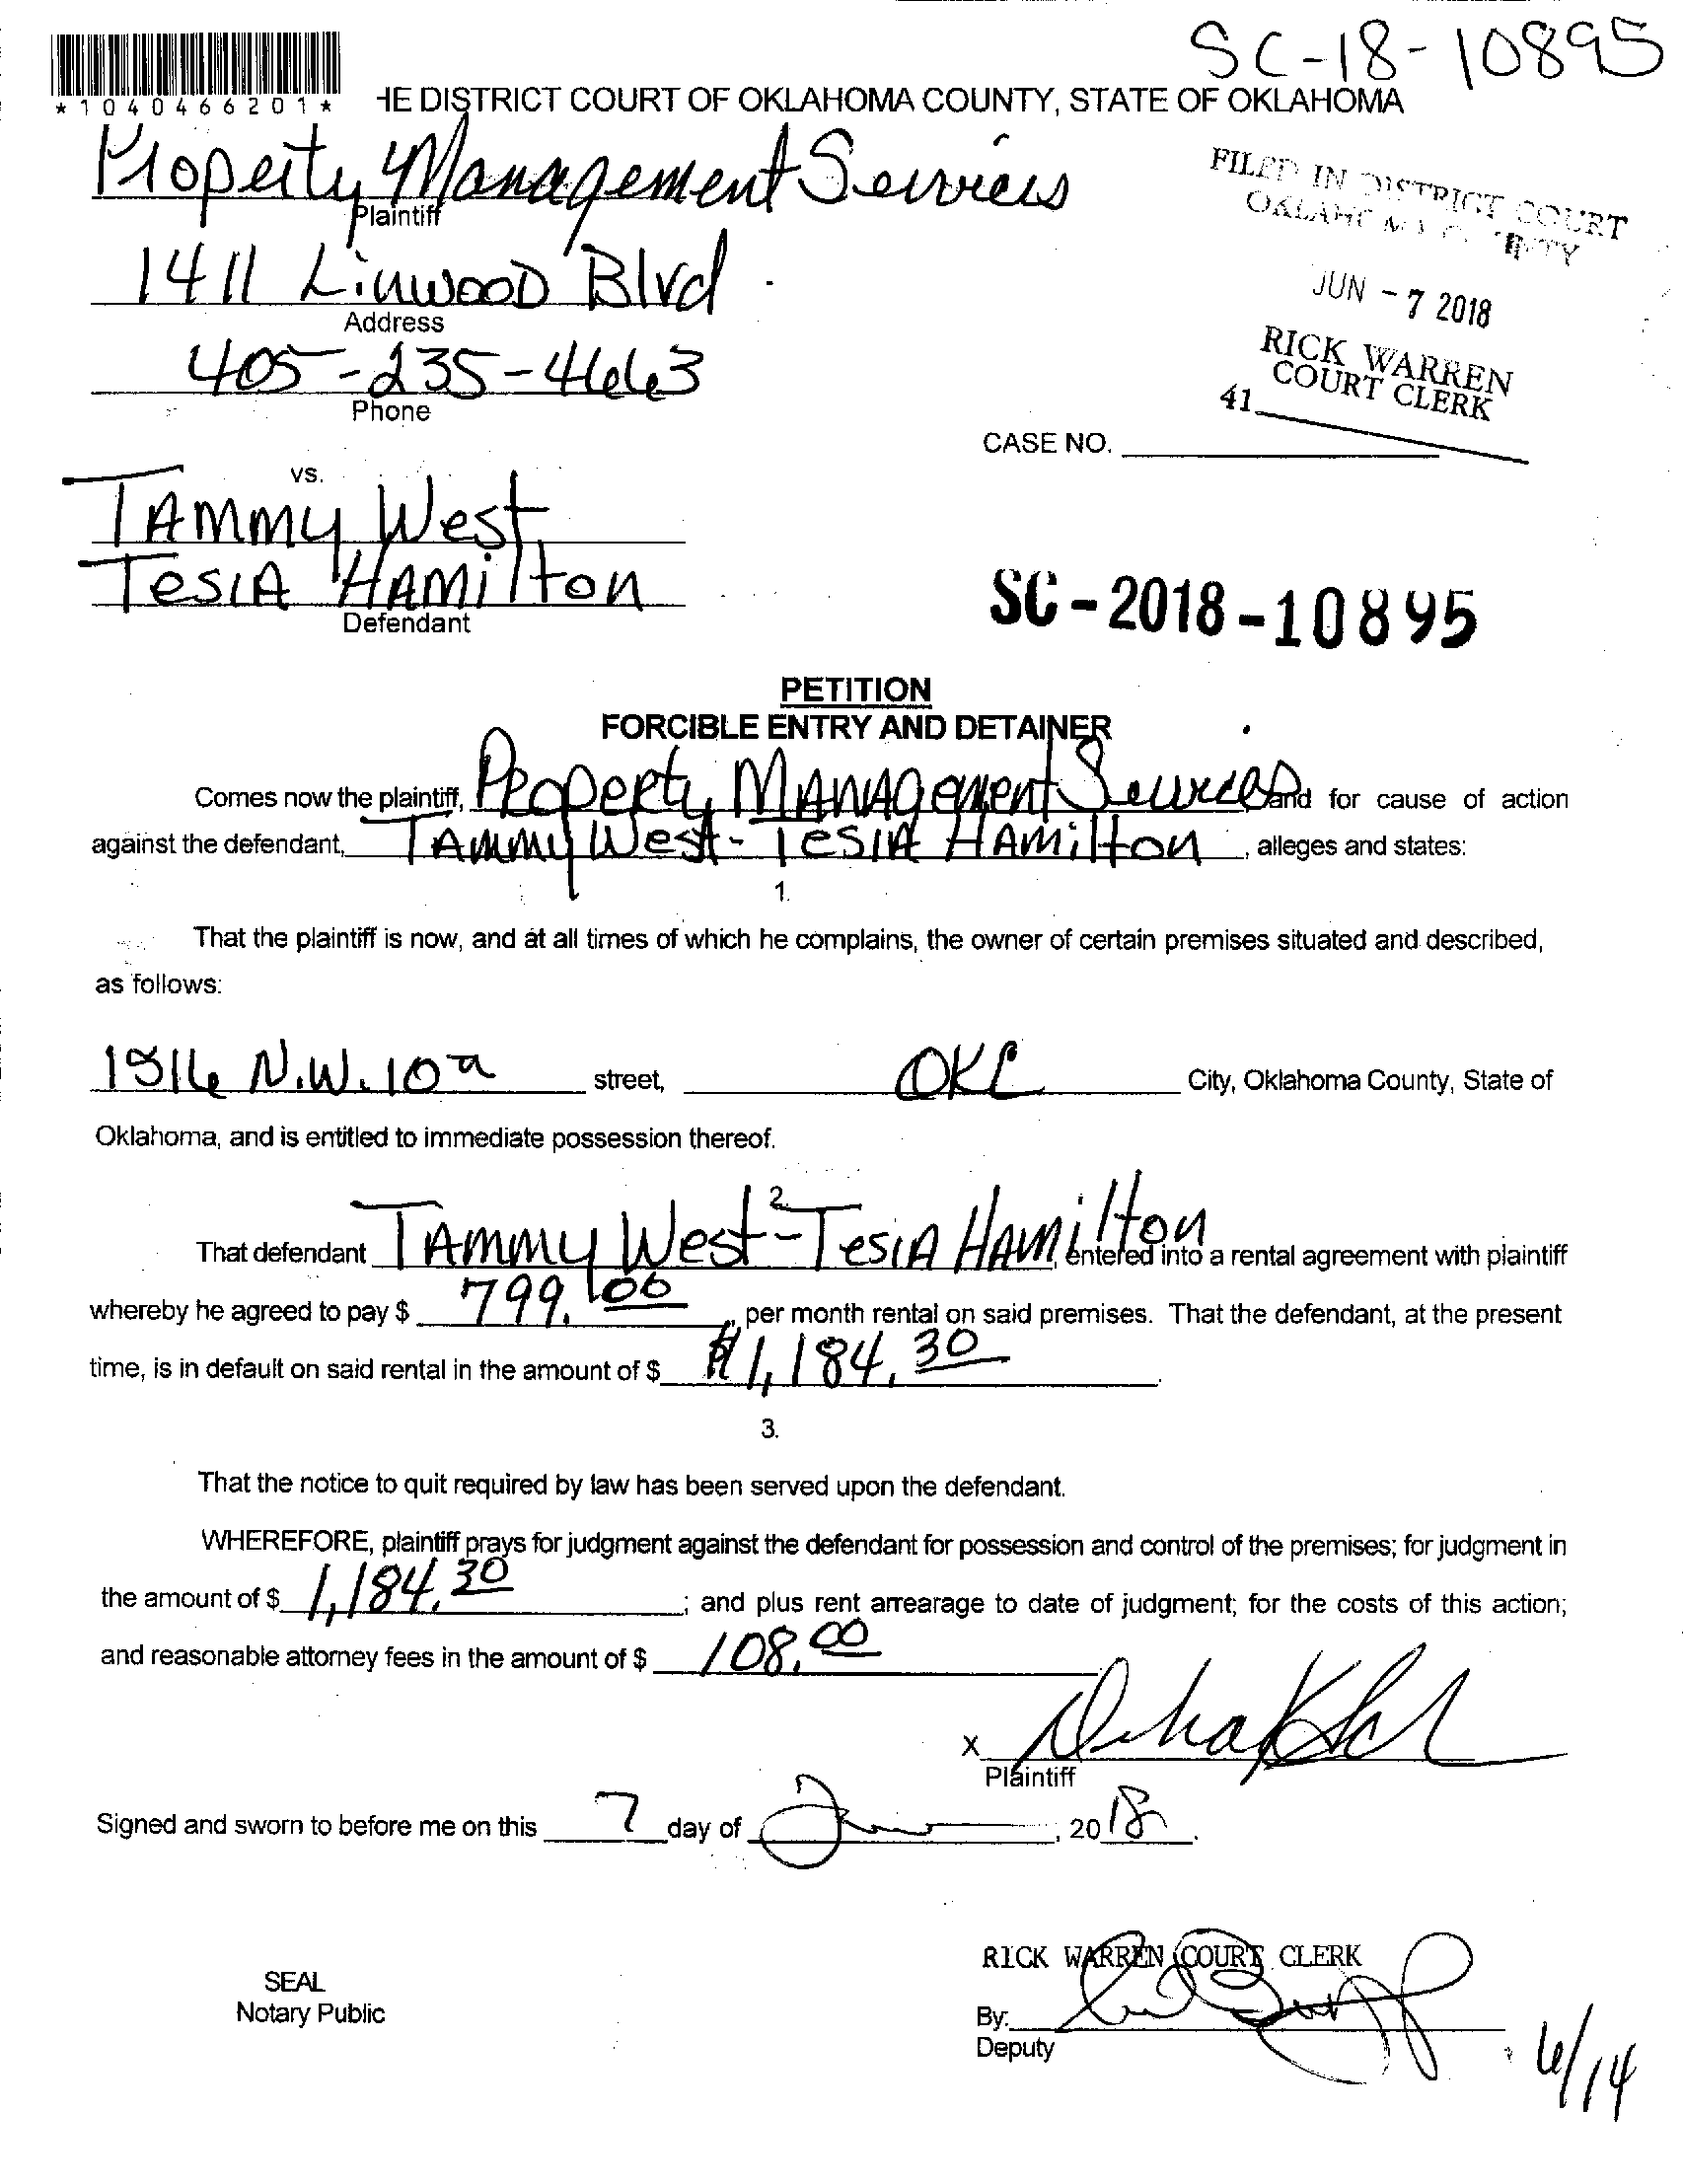 SC-18-10895
*1040466201*
HE DISTRICT COURT OF OKLAHOMA COUNTY, STATE OF OKLAHOMA
Property Management Services
Plaintiff
FILED IN DISTRICT COURT
OKLAHOMA COUNTY
1411 Linwood Blvd
Address
JUN - 7 2018
405-235-4663
Phone
RICK WARREN
COURT CLERK
41
CASE NO.
vs.
TAMMY West
TesiA HAMilton
Defendant
SC-2018-10895
PETITION
FORCIBLE ENTRY AND DETAINER
Comes now the plaintiff, Property MANAgement Services and for cause of action
against the defendant, TAMMY West - TesiA HAMilton, alleges and states:
1.
That the plaintiff is now, and at all times of which he complains, the owner of certain premises situated and described,
as follows:
N.W. 10 street, OKC City, Oklahoma County, State of
Oklahoma, and is entitled to immediate possession thereof.
2.
That defendant TAMMY West - TesiA HAMilton, entered into a rental agreement with plaintiff
whereby he agreed to pay $ 799.00, per month rental on said premises. That the defendant, at the present
time, is in default on said rental in the amount of $ $1,184.30.
3.
That the notice to quit required by law has been served upon the defendant.
WHEREFORE, plaintiff prays for judgment against the defendant for possession and control of the premises; for judgment in
the amount of $ 1,184.30; and plus rent arrearage to date of judgment; for the costs of this action;
and reasonable attorney fees in the amount of $ 108.00
X
Plaintiff
Signed and sworn to before me on this 7 day of June, 2018.
RICK WARREN COURT CLERK
SEAL
Notary Public
By:
Deputy
6/14